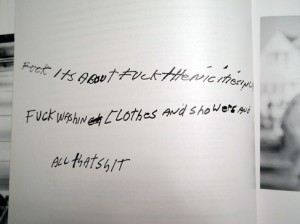 FUCK ITS ABOUT FUCK THE NICITIES
FUCK WASHIN CLOTHES AND SHOWERS AND
ALL THAT SHIT